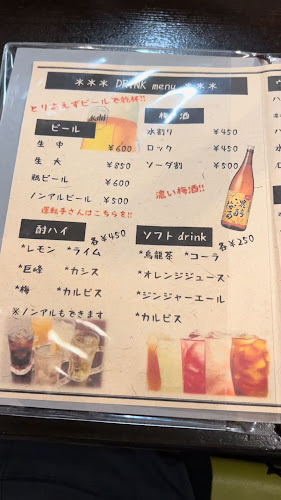 ＊＊＊ DRINK menu ＊＊＊
とりあえずビールで乾杯!!
Asahi
ビール
生中 ¥600
生大 ¥850
瓶ビール ¥600
ノンアルビール ¥500
運転手さんはこちらを!!
酎ハイ 各¥450
*レモン *ライム
*巨峰 *カシス
*梅 *カルピス
※ノンアルもできます
梅酒
水割り ¥450
ロック ¥450
ソーダ割 ¥500
濃い梅酒!!
ソフトdrink 各¥250
*烏龍茶 *コーラ
*オレンジジュース
*ジンジャーエール
*カルピス